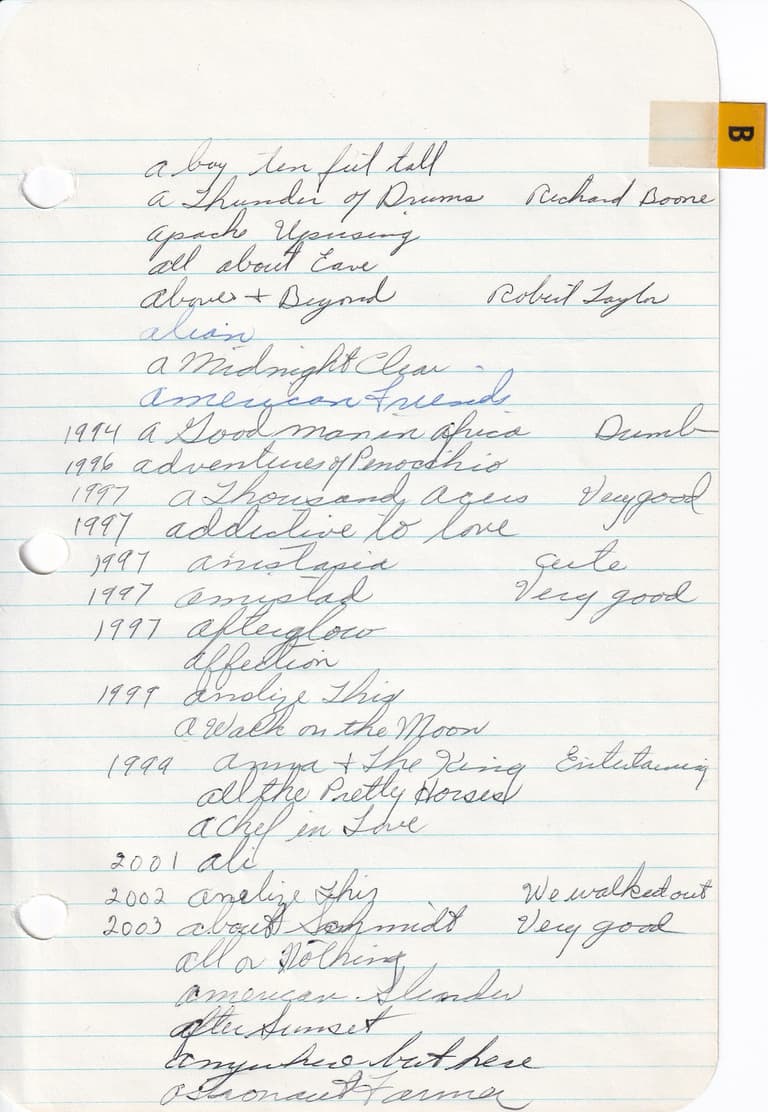 B
a boy ten feet tall
a Thunder of Drums Richard Boone
apache Uprising
all about Eave
above + Beyond Robert Taylor
alian
a Midnight Clear
american Friends
1994 a Good man in africa Dumb
1996 adventures of Penocchio
1997 a Thousand acers Very good
1997 addictive to love
1997 anistasia cute
1997 amistad Very good
1997 afterglow
affection
1999 analize This
a Walk on the Moon
1999 anna + The King Entertaining
all the Pretty Horses
a Chef in Love
2001 ali
2002 analize This We walked out
2003 about Schmidt Very good
all or Nothing
american Slender
after Sunset
anywhere but here
astronaut Farmer